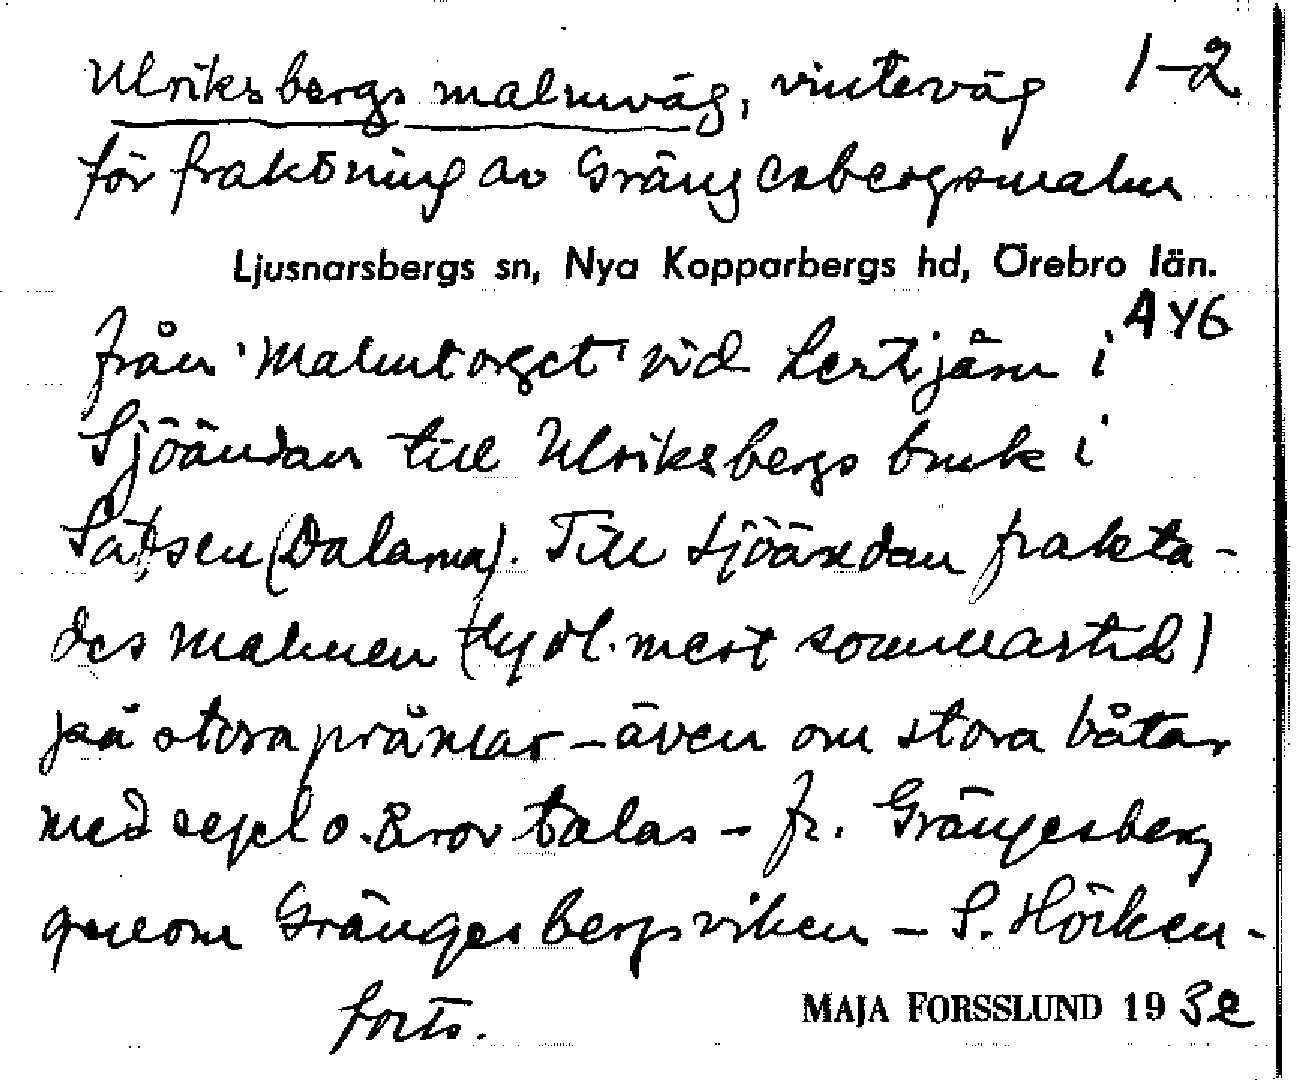 Ulriksbergs malmväg, vinterväg 1-2
för fraktning av Grängesbergsmalm
Ljusnarsbergs sn, Nya Kopparbergs hd, Örebro län.
A Y6
från 'Malmtorget' vid Lertjärn i
Sjöändan till Ulriksbergs bruk i
Säfsen (Dalarna). Till Sjöändan frakta-
des malmen (tydl. mest sommartid)
på stora pråmar - även om stora båtar
med segel o. åror talas - fr. Grängesberg
genom Grängesbergsviken - S. Hörken -
forts.
MAJA FORSSLUND 1932